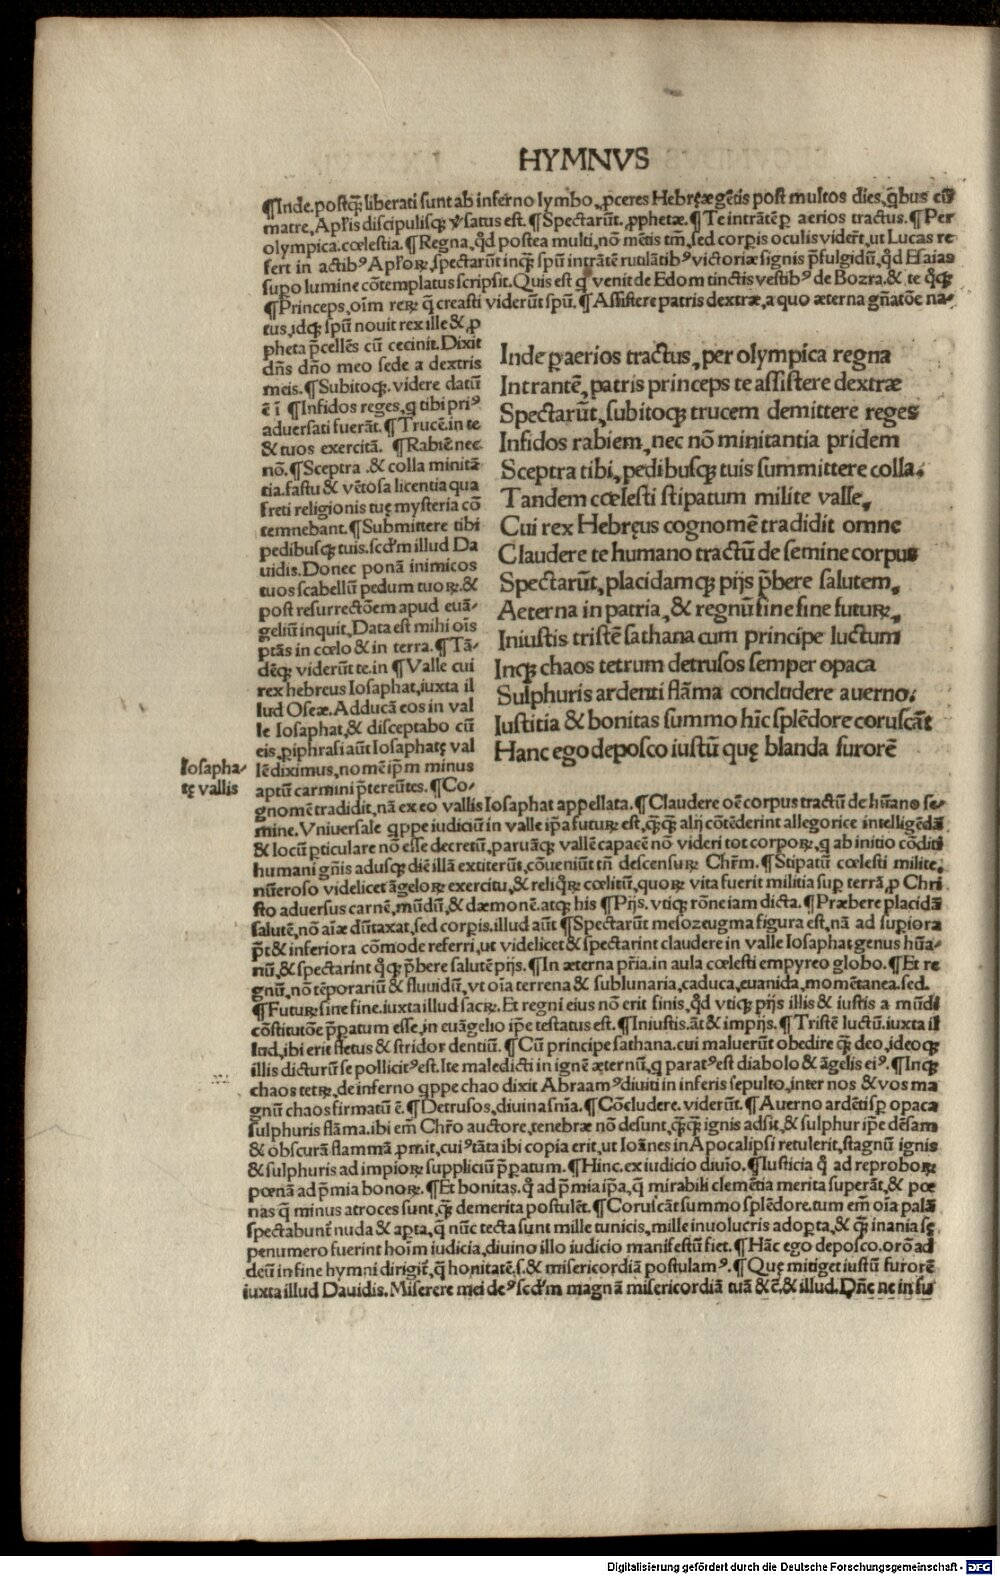 HYMNVS
¶Inde. postq̃ꝫ liberati sunt ab inferno lymbo, ꝓceres Hebręæ gẽtis post multos dies, q̃bus cũ
matre, Apl'is discipulisqꝫ v̓satus est. ¶Spectarũt. ꝓphetæ. ¶Te intrãtẽ ꝑ aerios tractus. ¶Per
olympica. cœlestia. ¶Regna, q̃d postea multi, nõ mẽtis tm̃, sed corꝑis oculis viderũt, ut Lucas re
fert in actibꝰ Apl'oꝝ, spectarũt inqꝫ spũ intrãtẽ rutilãtibꝰ victoriæ signis p̃fulgidũ, q̃d Esaias
supo lumine cõtemplatus scripsit. Quis est q̃ venit de Edom tinctis vestibꝰ de Bozra. & te q̃qꝫ
¶Princeps, oim reꝝ q̃ creasti viderũt spũ. ¶Assistere patris dextræ, a quo æterna gñatõe na-
tus, idqꝫ spũ nouit rex ille & ꝓ
pheta p̃cellẽs cũ cecinit. Dixit
dñs dño meo sede a dextris
meis. ¶Subitoqꝫ. videre datũ
ẽ ĩ ¶Infidos reges, q tibi priꝰ
aduersati fuerãt. ¶Trucẽ. in te
& tuos exercitã. ¶Rabiẽ nec
nõ. ¶Sceptra . & colla minitã
tia. fastu & vẽtosa licentia qua
freti religionis tuę mysteria cõ
temnebant. ¶Submittere tibi
pedibusqꝫ tuis. scđm illud Da
uidis. Donec ponã inimicos
tuos scabellũ pedum tuoꝝ. &
post resurrectõem apud euã-
geliũ inquit, Data est mihi oĩs
ptãs in cœlo & in terra. ¶Tã-
dẽqꝫ viderũt te. in ¶Valle cui
rex hebreus Iosaphat, iuxta il
lud Oseæ. Adducã eos in val
le Iosaphat, & disceptabo cũ
eis, ꝑiphrasi aũt Iosaphatę val
lẽ diximus, nomẽ ip̃m minus
aptũ carmini p̃tereũtes. ¶Co-
Inde ꝑ aerios tractus, per olympica regna
Intrantẽ, patris princeps te assistere dextræ
Spectarũt, subitoqꝫ trucem demittere reges
Infidos rabiem, nec nõ minitantia pridem
Sceptra tibi, pedibusqꝫ tuis summittere colla.
Tandem cœlesti stipatum milite valle,
Cui rex Hebręus cognomẽ tradidit omne
Claudere te humano tractũ de semine corpus
Spectarũt, placidamqꝫ pijs p̃bere salutem,
Aeterna in patria, & regnũ sine fine futuꝝ,
Iniustis tristẽ sathana cum principe luctum
Inqꝫ chaos tetrum detrusos semper opaca
Sulphuris ardenti flãma concludere auerno.
Iustitia & bonitas summo hĩc splẽdore coruscãt
Hanc ego deposco iustũ quę blanda furorẽ
Iosapha-
tę vallis
gnomẽ tradidit, nã ex eo vallis Iosaphat appellata. ¶Claudere oẽ corpus tractũ de hũano se-
mine. Vniuersale q̃ppe iudiciũ in valle ip̃a futuꝝ est, q̃q̃ꝫ alij cõtẽderint allegorice intelligẽdã
& locũ ꝑticulare nõ esse decretũ, paruãqꝫ vallẽ capacẽ nõ videri tot corpoꝝ, q̃ ab initio cõditi
humani gñis adusqꝫ diẽ illã extiterũt, cõueniũt tñ descensuꝝ Chr̃m. ¶Stipatũ cœlesti milite.
nũeroso videlicet ãgeloꝝ exercitu, & reliq̃ꝝ cœlitũ, quoꝝ vita fuerit militia suꝑ terrã, ꝓ Chri
sto aduersus carnẽ, mũdũ, & dæmonẽ. atqꝫ his ¶Pijs. vtiqꝫ rõne iam dicta. ¶Præbere placidã
salutẽ, nõ aĩæ dũtaxat, sed corꝑis. illud aũt ¶Spectarũt mesozeugma figura est, nã ad suꝑiora
p̃t & inferiora cõmode referri, ut videlicet & spectarint claudere in valle Iosaphat genus hũa-
nũ, & spectarint q̃qꝫ p̃bere salutẽ pijs. ¶In æterna pr̃ia. in aula cœlesti empyreo globo. ¶Et re
gnũ, nõ tẽporariũ & fluuidũ, vt oĩa terrena & sublunaria, caduca, euanida, momẽtanea. sed.
¶Futuꝝ sine fine. iuxta illud sacꝝ. Et regni eius nõ erit finis, q̃d vtiqꝫ pijs illis & iustis a mũdi
cõstitutõe p̃ꝑatum esse, in euãgelio ip̃e testatus est. ¶Iniustis. ãt & impijs. ¶Tristẽ luctũ. iuxta il
lud, ibi erit fletus & stridor dentiũ. ¶Cũ principe sathana. cui maluerũt obedire q̃ꝫ deo, ideoqꝫ
illis dicturũ se pollicitꝰ est. Ite maledicti in ignẽ æternũ, q paratꝰ est diabolo & ãgelis eiꝰ. ¶Inqꝫ
chaos tetꝝ, de inferno q̃ppe chao dixit Abraamꝰ diuiti in inferis sepulto, inter nos & vos ma
gnũ chaos firmatũ ẽ. ¶Detrusos, diuina sñia. ¶Cõcludere. viderũt. ¶Auerno ardẽti ꝑ opaca
sulphuris flãma. ibi em̃ Chr̃o auctore, tenebræ nõ desunt, q̃q̃ꝫ ignis adsit, & sulphur ip̃e dẽsam
& obscurã flammã ꝓmit, cuiꝰ tãta ibi copia erit, ut Ioãnes in Apocalipsi retulerit, stagnũ ignis
& sulphuris ad impioꝝ suppliciũ p̃ꝑatum. ¶Hinc. ex iudicio diuio. ¶Iusticia q̃ ad reproboꝝ
pœnã ad p̃mia bonoꝝ. ¶Et bonitas. q̃ ad p̃mia ip̃a, q̃ mirabili clemẽtia merita superãt, & pœ
nas q̃ minus atroces sunt, q̃ꝫ demerita postulẽt. ¶Coruscãt summo splẽdore. tum em̃ oĩa palã
spectabunt̃ nuda & aꝑta, q̃ nũc tecta sunt mille tunicis, mille inuolucris adoꝑta, & q̃ꝫ inania sę
penumero fuerint hoĩm iudicia, diuino illo iudicio manifestũ fiet. ¶Hãc ego deposco. orõ ad
deũ in fine hymni dirigit̃, q̃ honitatẽ. s. & misericordiã postulamꝰ. ¶Quę mitiget iustũ furorẽ
iuxta illud Dauidis. Miserere mei deꝰ scđm magnã misericordiã tuã &č. & illud. Dñe ne in fu
Digitalisierung gefördert durch die Deutsche Forschungsgemeinschaft - DFG